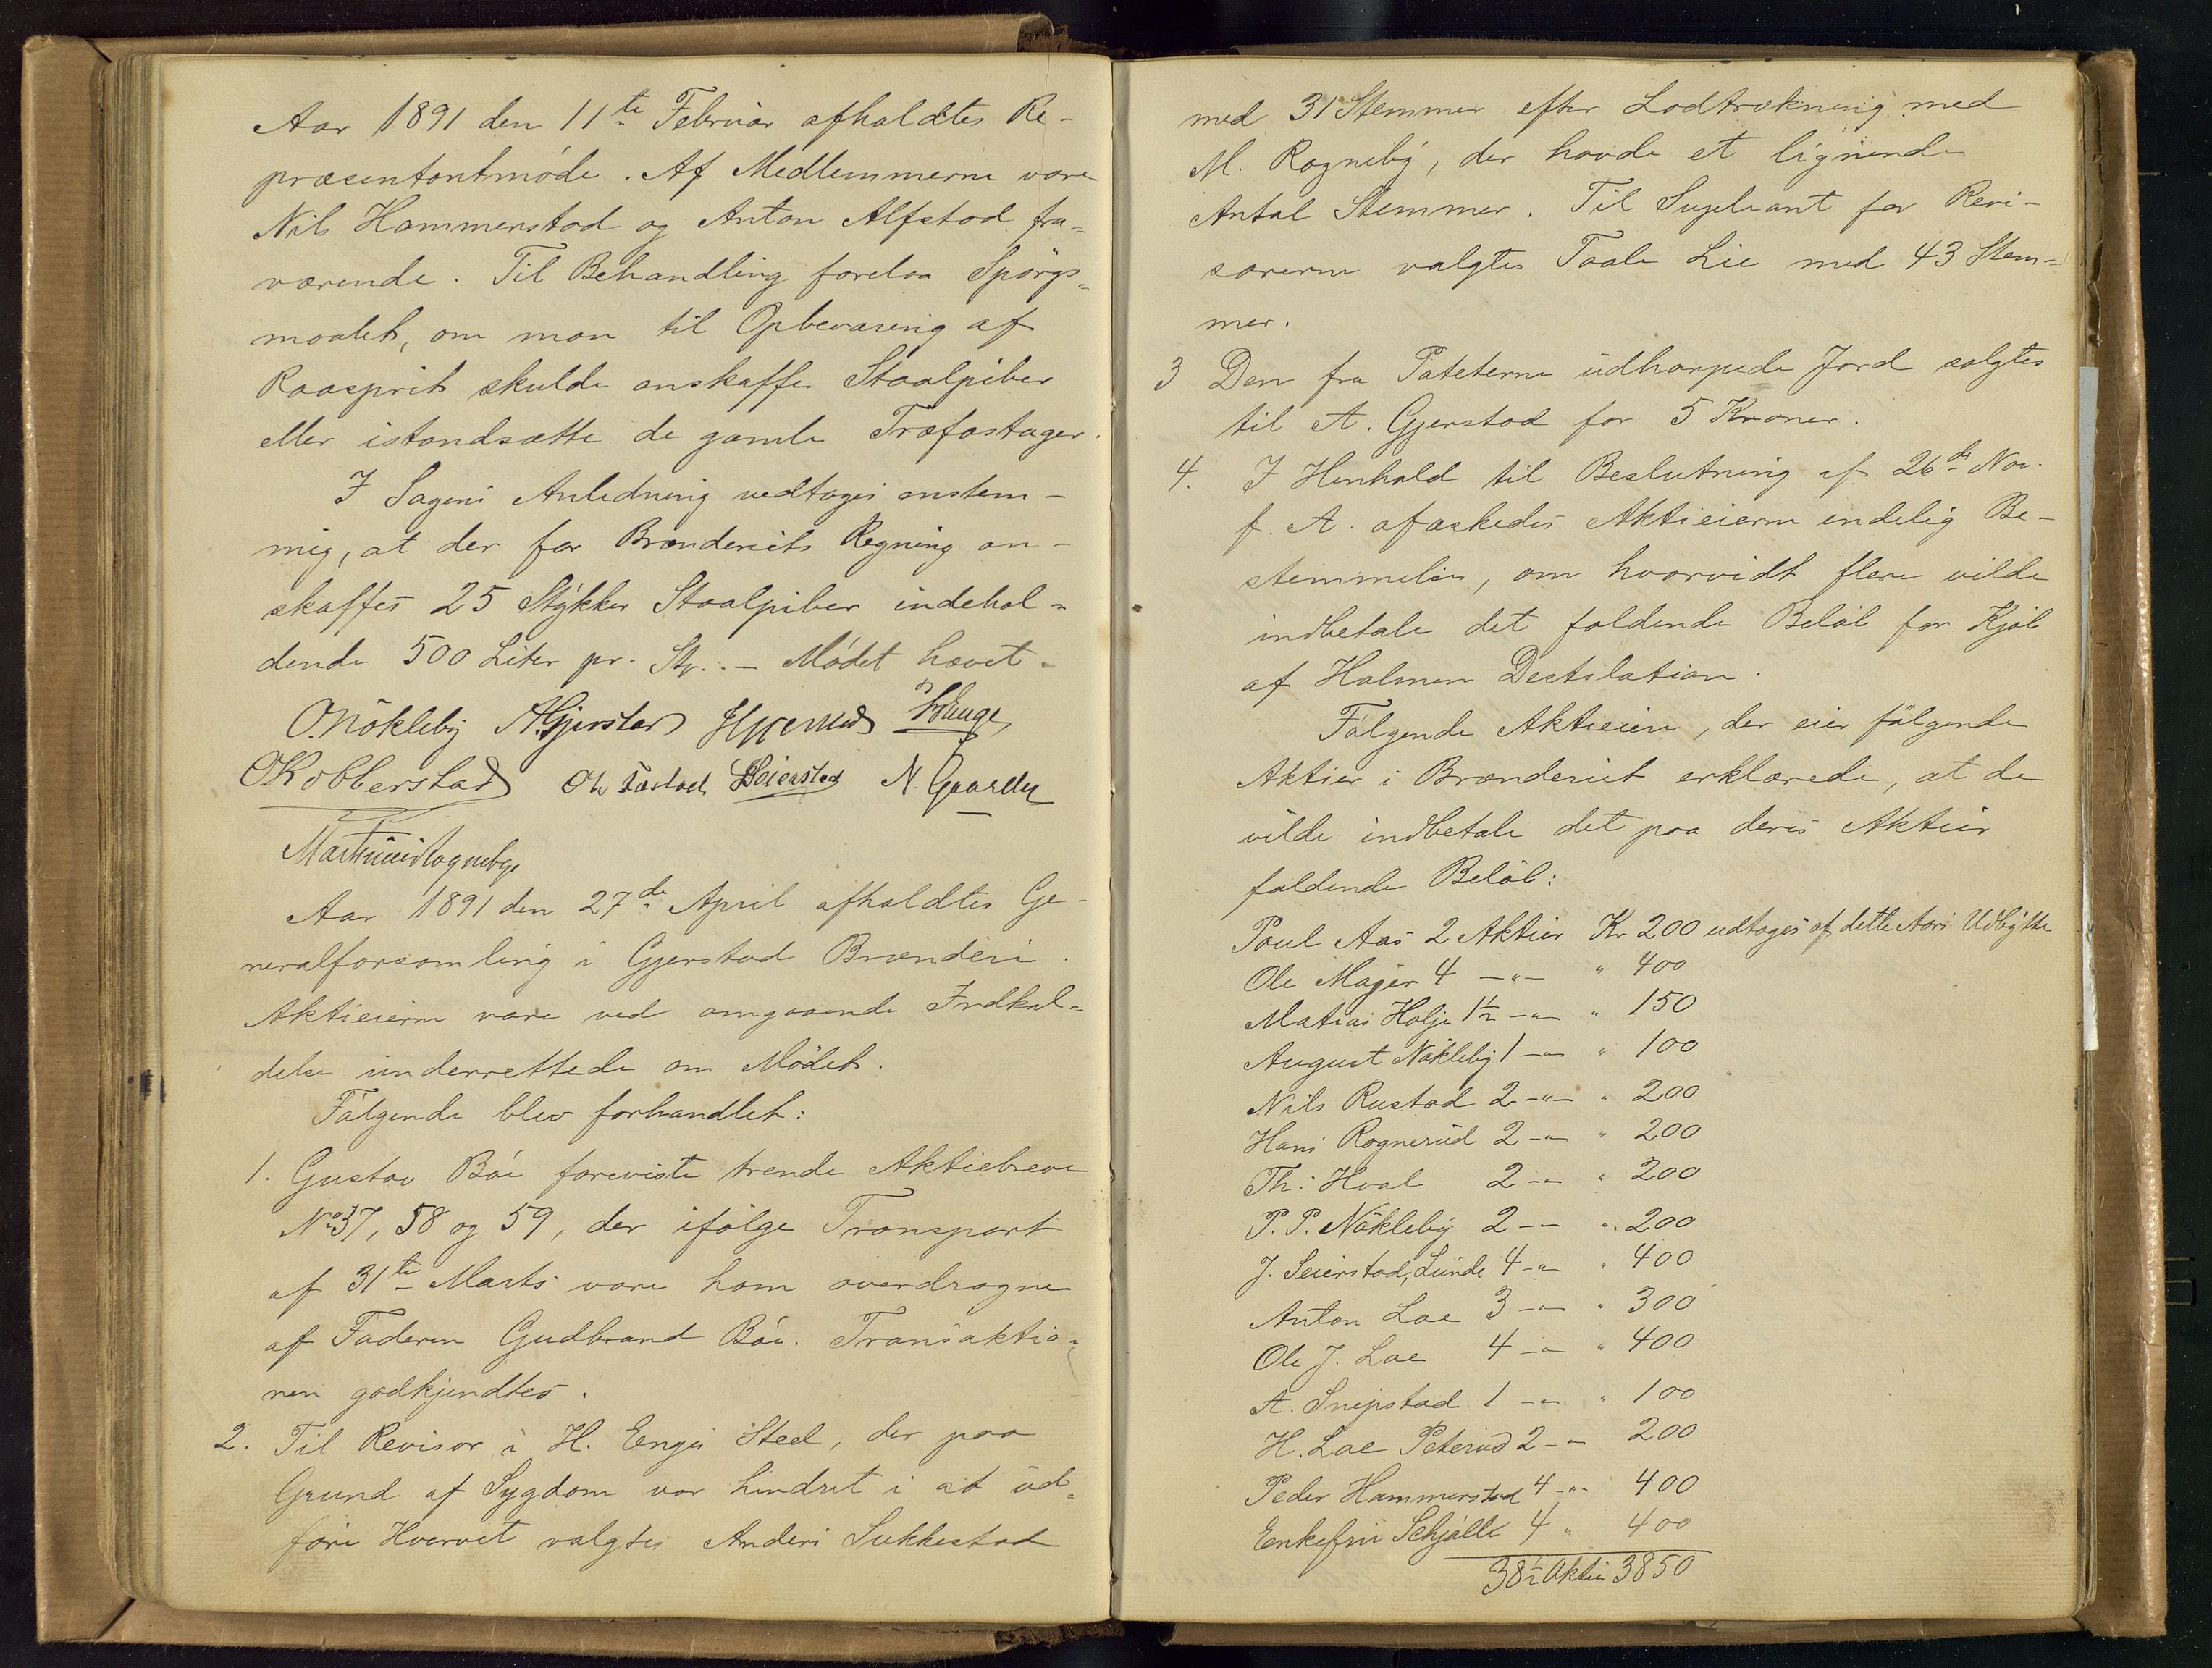 Aar 1891 den 11te Februar afholdtes Re-
præsentantmøde. Af Medlemmerne vare
Nils Hammerstad og Anton Alfstad fra-
værende. Til Behandling forelaa Spörgs-
maalet, om man til Opbevaring af
Raasprit skulde anskaffe Staalpiber
eller istandsætte de gamle Træfastager.
I Sagens Anledning vedtoges enstem-
mig, at der for Brænderiets Regning an-
skaffes 25 Stykker Staalpiber indehol-
dende 500 Liter pr. St. — Mödet hævet.
O. Nökleby A. Gjerstad
O Kobberstad Ole Fastad Seierstad N. Gaarder
Martinius Rogneby
Aar 1891 den 27de April afholdtes Ge-
neralforsamling i Gjerstad Brænderi.
Aktieierne vare ved omgaaende Indkal-
delse underrettede om Mödet.
Fölgende blev forhandlet:
1. Gustav Böe foreviste trende Aktiebreve
No 37, 58 og 59, der ifölge Transport
af 31te Marts vare ham overdragne
af Faderen Gudbrand Böe. Transaktio-
nen godkjendtes.
2. Til Revisor i H. Enges Sted, der paa
Grund af Sygdom var hindret i at ud-
före Hvervet valgtes Anders Sukkestad
med 31 Stemmer efter Lodtrækning med
M. Rogneby, der havde et lignende
Antal Stemmer. Til Supleant for Revi-
sorerne valgtes Taale Lie med 43 Stem-
mer.
3 Den fra Poteterne udharpede Jord solgtes
til A. Gjerstad for 5 Kroner.
4. I Henhold til Beslutning af 26de Nov.
f. A. afæskedes Aktieierne endelig Be-
stemmelse, om hvorvidt flere vilde
indbetale det faldende Belöb for Kjöb
af Holmen Destilation.
Fölgende Aktieiere, der eier fölgende
Aktier i Brænderiet erklærede, at de
vilde indbetale det paa deres Aktier
faldende Belöb:
Poul Aas 2 Aktier Kr 200 udtages af dette Aars Udbytte
Ole Majer 4 —"— " 400
Matias Holje 1½ —"— " 150
August Nökleby 1 —"— " 100
Nils Rustad 2 —"— " 200
Hans Rognerud 2 —"— " 200
Th. Hval 2 —"— " 200
P. P. Nökleby 2 —"— " 200
J. Seierstad, Lunde 4 —"— " 400
Anton Loe 3 —"— " 300
Ole J. Loe 4 —"— " 400
A. Snipstad 1 —"— " 100
H. Loe Peterud 2 —"— 200
Peder Hammerstad 4 —"— 400
Enkefru Schjölle 4 " 400
38½ Aktie 3850